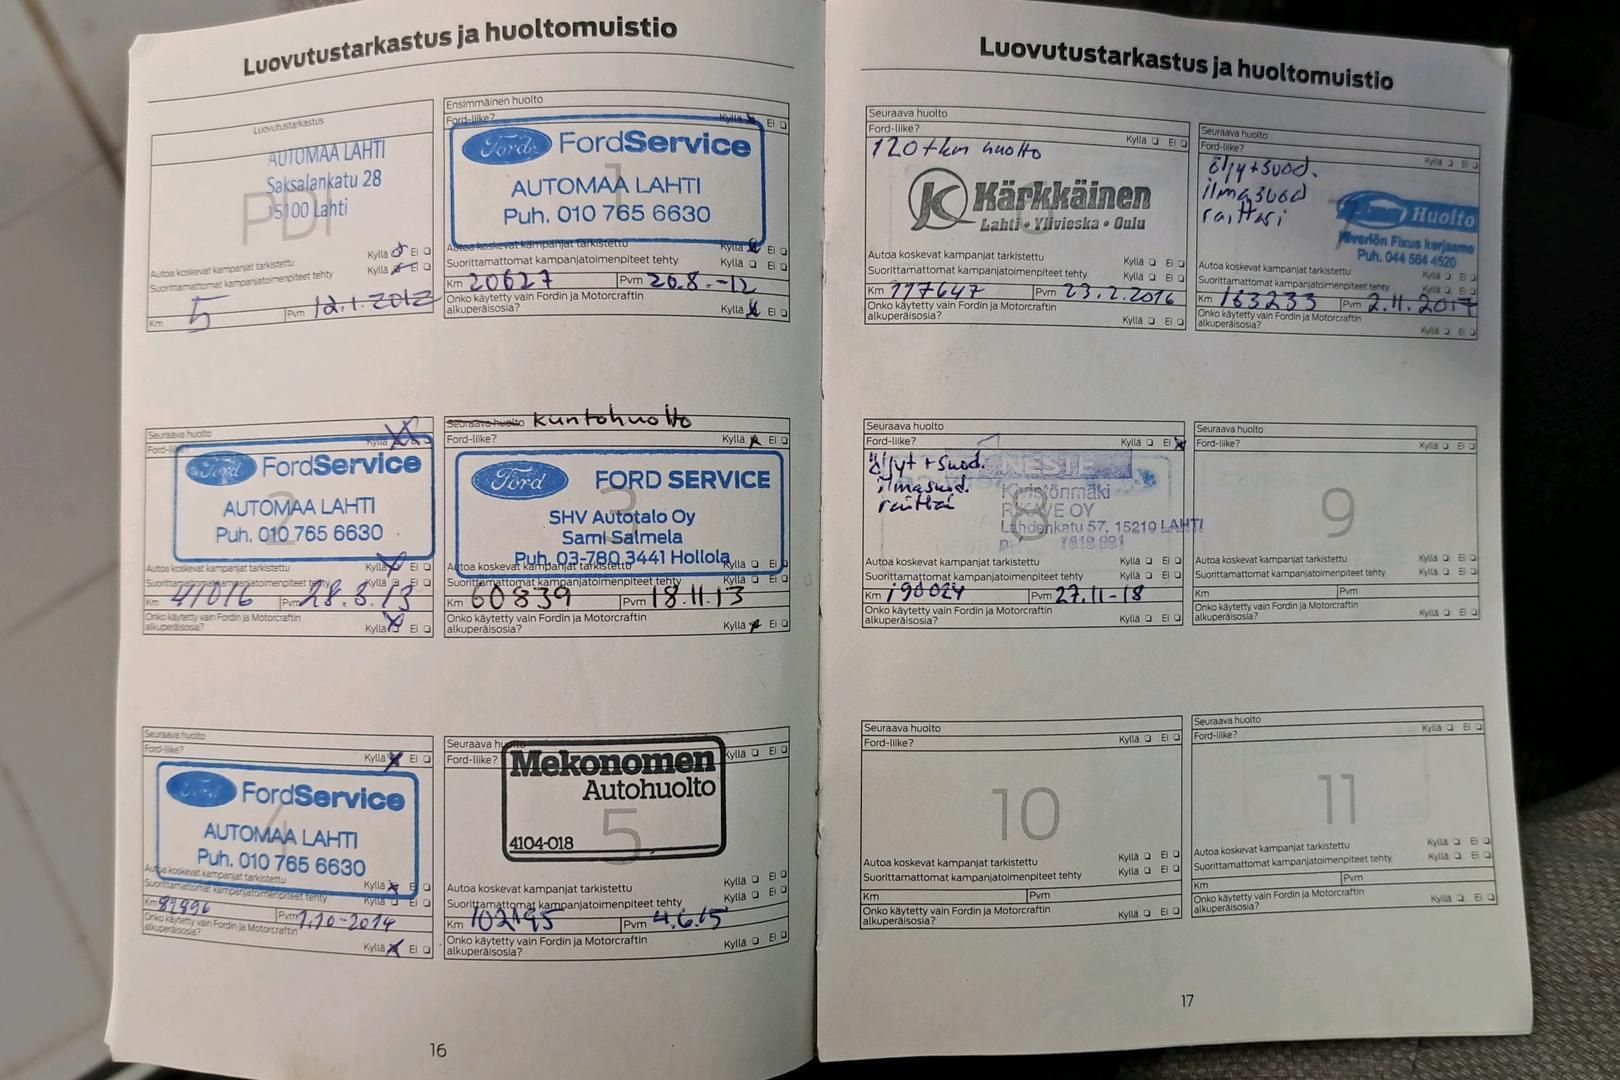 Luovutustarkastus ja huoltomuistio
Luovutustarkastus
AUTOMAA LAHTI
Saksalankatu 28
15100 Lahti
PDI
Kyllä Ei
Autoa koskevat kampanjat tarkistettu
Kyllä Ei
Suorittamattomat kampanjatoimenpiteet tehty
Km 5 Pvm 12.1.2012
Ensimmäinen huolto
Ford-liike? Kyllä Ei
Ford FordService
1
AUTOMAA LAHTI
Puh. 010 765 6630
Autoa koskevat kampanjat tarkistettu Kyllä Ei
Suorittamattomat kampanjatoimenpiteet tehty Kyllä Ei
Km 20627 Pvm 20.8.-12
Onko käytetty vain Fordin ja Motorcraftin
alkuperäisosia? Kyllä
Seuraava huolto
Ford-liike? Kyllä
Ford FordService
2
AUTOMAA LAHTI
Puh. 010 765 6630
Autoa koskevat kampanjat tarkistettu Kyllä Ei
Suorittamattomat kampanjatoimenpiteet tehty Kyllä Ei
Km 41016 Pvm 28.3.13
Onko käytetty vain Fordin ja Motorcraftin
alkuperäisosia? Kyllä Ei
Seuraava huolto kuntohuolto
Ford-liike? Kyllä Ei
Ford FORD SERVICE
3
SHV Autotalo Oy
Sami Salmela
Puh. 03-780 3441 Hollola
Autoa koskevat kampanjat tarkistettu Kyllä Ei
Suorittamattomat kampanjatoimenpiteet tehty Kyllä Ei
Km 60839 Pvm 18.11.13
Onko käytetty vain Fordin ja Motorcraftin
alkuperäisosia? Kyllä Ei
Seuraava huolto
Ford-liike? Kyllä Ei
Ford FordService
4
AUTOMAA LAHTI
Puh. 010 765 6630
Autoa koskevat kampanjat tarkistettu Kyllä Ei
Suorittamattomat kampanjatoimenpiteet tehty Kyllä Ei
Km Pvm 1.10-2014
Onko käytetty vain Fordin ja Motorcraftin
alkuperäisosia? Kyllä Ei
Seuraava huolto
Ford-liike? Kyllä Ei
Mekonomen
Autohuolto
5
4104-018
Autoa koskevat kampanjat tarkistettu Kyllä Ei
Suorittamattomat kampanjatoimenpiteet tehty Kyllä Ei
Km 102195 Pvm 4.6.15
Onko käytetty vain Fordin ja Motorcraftin
alkuperäisosia? Kyllä Ei
16
Luovutustarkastus ja huoltomuistio
Seuraava huolto
Ford-liike? Kyllä Ei
120tkm huolto
K Kärkkäinen
Lahti • Ylivieska • Oulu
Autoa koskevat kampanjat tarkistettu Kyllä Ei
Suorittamattomat kampanjatoimenpiteet tehty Kyllä Ei
Km 117647 Pvm 23.2.2016
Onko käytetty vain Fordin ja Motorcraftin
alkuperäisosia? Kyllä Ei
Seuraava huolto
Ford-liike? Kyllä Ei
öljy+suod.
ilmasuod
raittari
7
Huolto
Kiveriön Fixus korjaamo
Puh. 044 564 4520
Autoa koskevat kampanjat tarkistettu Kyllä Ei
Suorittamattomat kampanjatoimenpiteet tehty Kyllä Ei
Km 153233 Pvm 2.11.2017
Onko käytetty vain Fordin ja Motorcraftin
alkuperäisosia? Kyllä Ei
Seuraava huolto
Ford-liike? Kyllä Ei
öljyt + suod. NESTE
ilmasuod.
8
OY
Lahdenkatu 57, 15210 LAHTI
Autoa koskevat kampanjat tarkistettu Kyllä Ei
Suorittamattomat kampanjatoimenpiteet tehty Kyllä Ei
Km 190024 Pvm 27.11-18
Onko käytetty vain Fordin ja Motorcraftin
alkuperäisosia? Kyllä Ei
Seuraava huolto
Ford-liike? Kyllä Ei
9
Autoa koskevat kampanjat tarkistettu Kyllä Ei
Suorittamattomat kampanjatoimenpiteet tehty Kyllä Ei
Km Pvm
Onko käytetty vain Fordin ja Motorcraftin
alkuperäisosia? Kyllä Ei
Seuraava huolto
Ford-liike? Kyllä Ei
10
Autoa koskevat kampanjat tarkistettu Kyllä Ei
Suorittamattomat kampanjatoimenpiteet tehty Kyllä Ei
Km Pvm
Onko käytetty vain Fordin ja Motorcraftin
alkuperäisosia? Kyllä Ei
Seuraava huolto
Ford-liike? Kyllä Ei
11
Autoa koskevat kampanjat tarkistettu Kyllä Ei
Suorittamattomat kampanjatoimenpiteet tehty Kyllä Ei
Km Pvm
Onko käytetty vain Fordin ja Motorcraftin
alkuperäisosia? Kyllä Ei
17